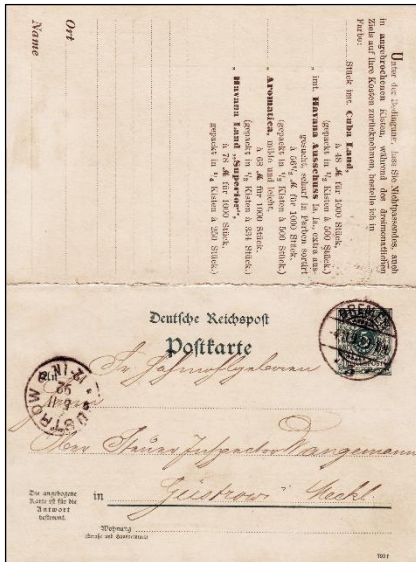 Unter der Bedingung, dass Sie Nichtpassendes, auch
in angebrochenen Kisten, während des dreimonatlichen
Ziels auf Ihre Kosten zurücknehmen, bestelle ich in
Farbe:
Stück imt. Cuba Land,
à 48 M für 1000 Stück,
(gepackt in 1/5 Kisten à 500 Stück.)
" imt. Havana Ausschuss Ia. Ia., extra aus-
gesucht, scharf in Farben sortirt
M für 1000 Stück.
(gepackt in Kisten à 500 Stück.)
" Aromatica, milde und leicht,
à 63 M für 1000 Stück.
(gepackt in 1/3 Kisten à 334 Stück.)
" Havana Land „Superior“,
à 78 M für 1000 Stück.
gepackt in 1/4 Kisten à 250 Stück.)
Ort
Name
Deutsche Reichspost
Postkarte
BREMEN
An
GÜSTROW
Ober Steuer Inspector Wangemann
in Güstrow Meckl.
Die angebogene
Karte ist für die
Antwort
bestimmt.
Wohnung
(Straße und Hausnummer)